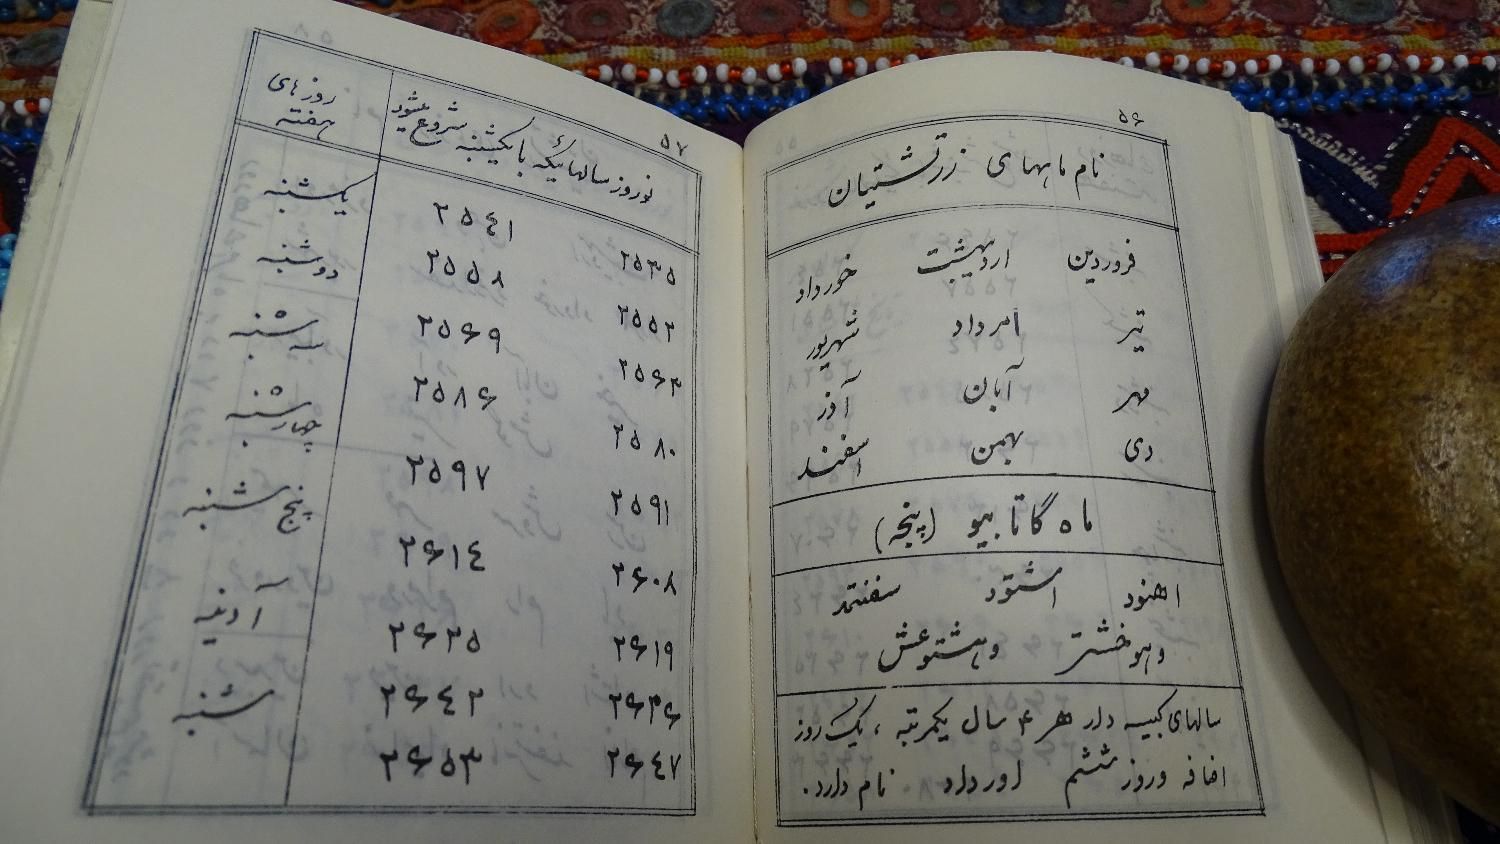 ۵۶
نام ماههای زرتشتیان
فروردین اردیبهشت خورداد
تیر امرداد شهریور
مهر آبان آذر
دی بهمن اسفند
ماه گاتابیو (پنجه)
اهنود اشتود سفنتمد
وهوخشتر وهشتوعش
سالهای کبیسه دار هر ۴ سال یکمرتبه ، یک روز
اضافه وروز ششم اورداد نام دارد.
۵۷
نوروز سالهائیکه با یکشنبه شروع میشود
۲۵۳۵ ۲۵٤۱
۲۵۵۲ ۲۵۵۸
۲۵۶۳ ۲۵۶۹
۲۵۸۰ ۲۵۸۶
۲۵۹۱ ۲۵۹۷
۲۶۰۸ ۲۶۱٤
۲۶۱۹ ۲۶۲۵
۲۶۳۶ ۲۶٤۲
۲۶٤۷ ۲۶۵۳
روزهای
هفته
یکشنبه
دوشنبه
سه شنبه
چهارشنبه
پنج شنبه
آدینه
شنبه